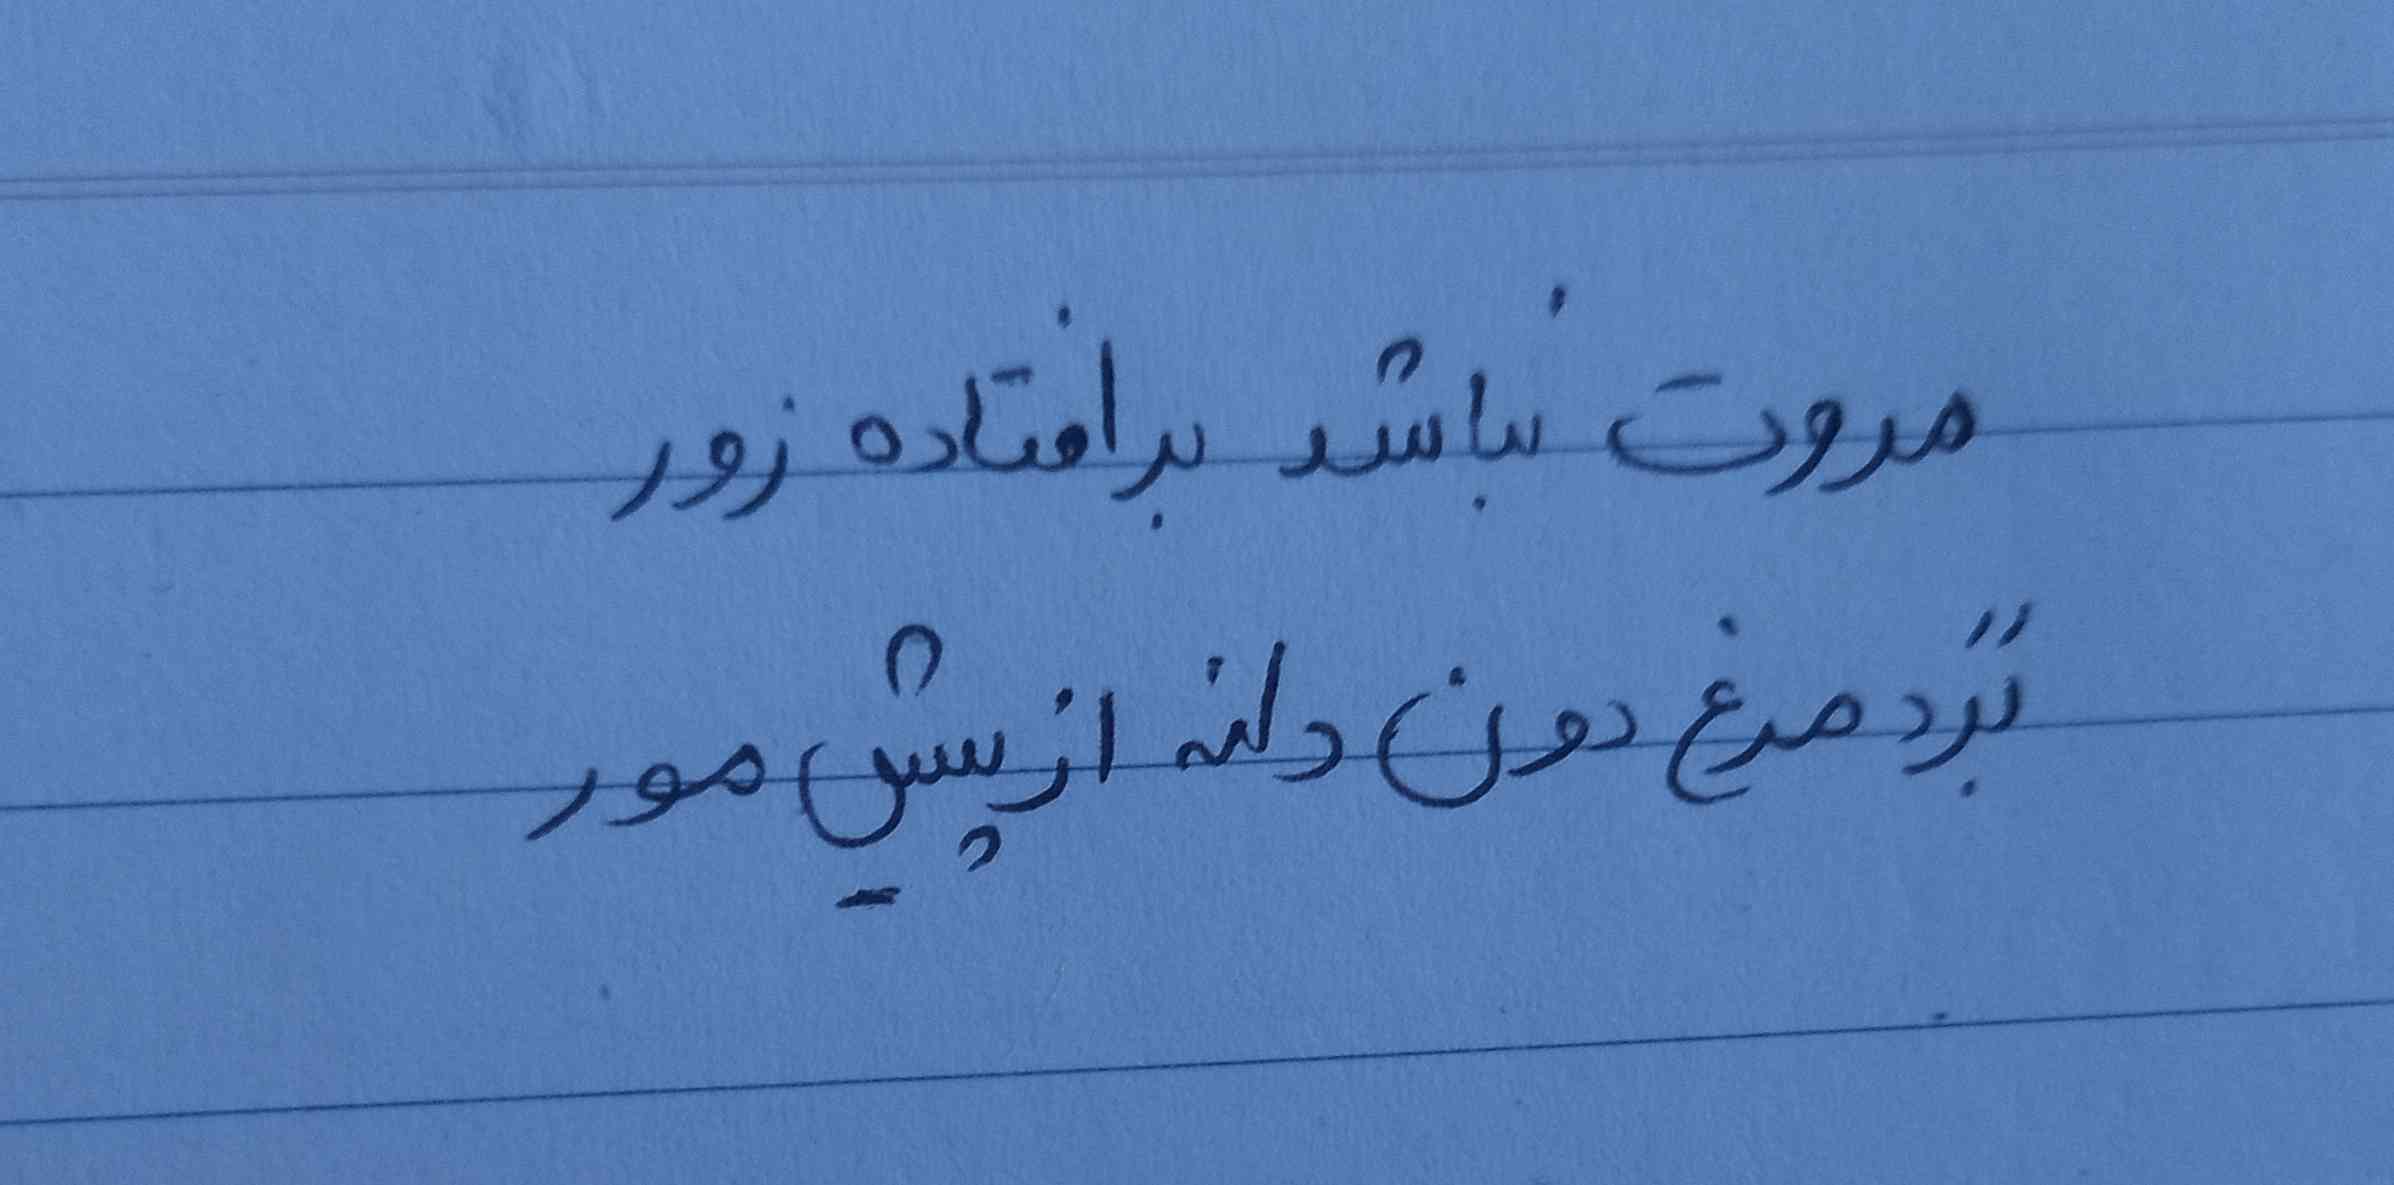 مروت نباشد بر افتاده زور
برد مرغ دون دانه از پیش مور